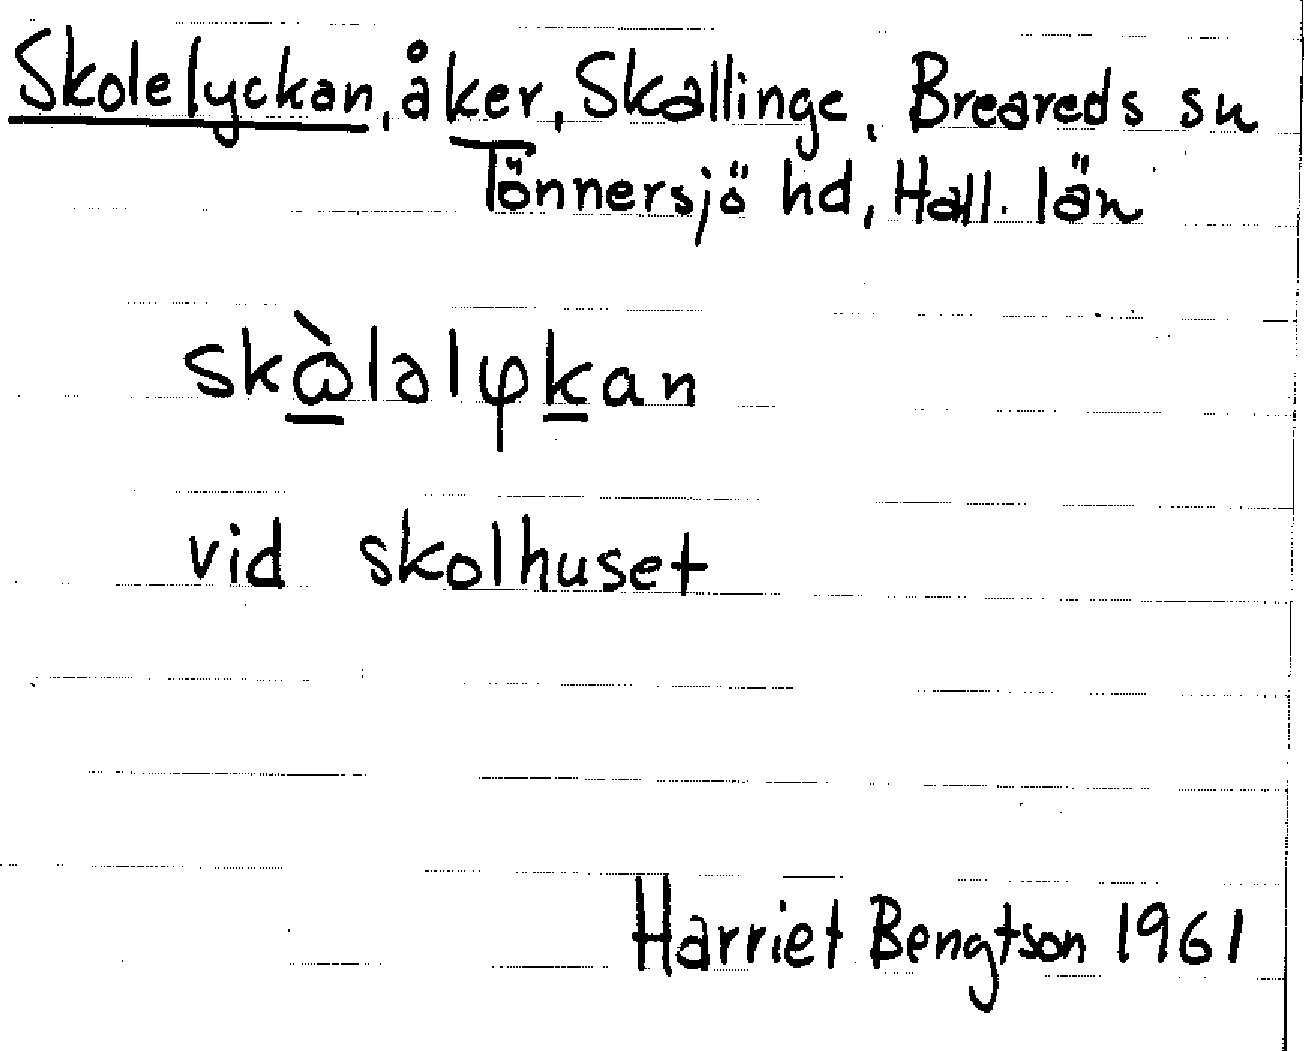 Skolelyckan, åker, Skallinge, Breareds sn
Tönnersjö hd, Hall. län
skὼləlφkan
vid skolhuset
Harriet Bengtson 1961